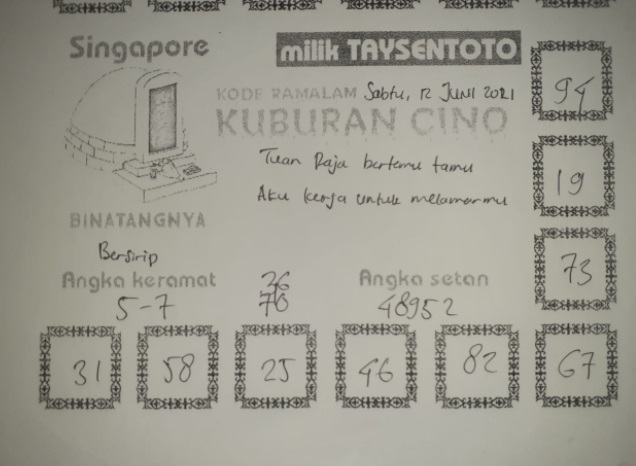 Singapore
milik TAYSENTOTO
KODE RAMALAM Sabtu, 12 JUNI 2021
KUBURAN CINO
Tuan Raja bertemu tamu
Aku kerja untuk melamarmu
BINATANGNYA
Bersirip
Angka keramat
5-7
26
76
Angka setan
48952
94
19
73
31 58 25 46 82 67